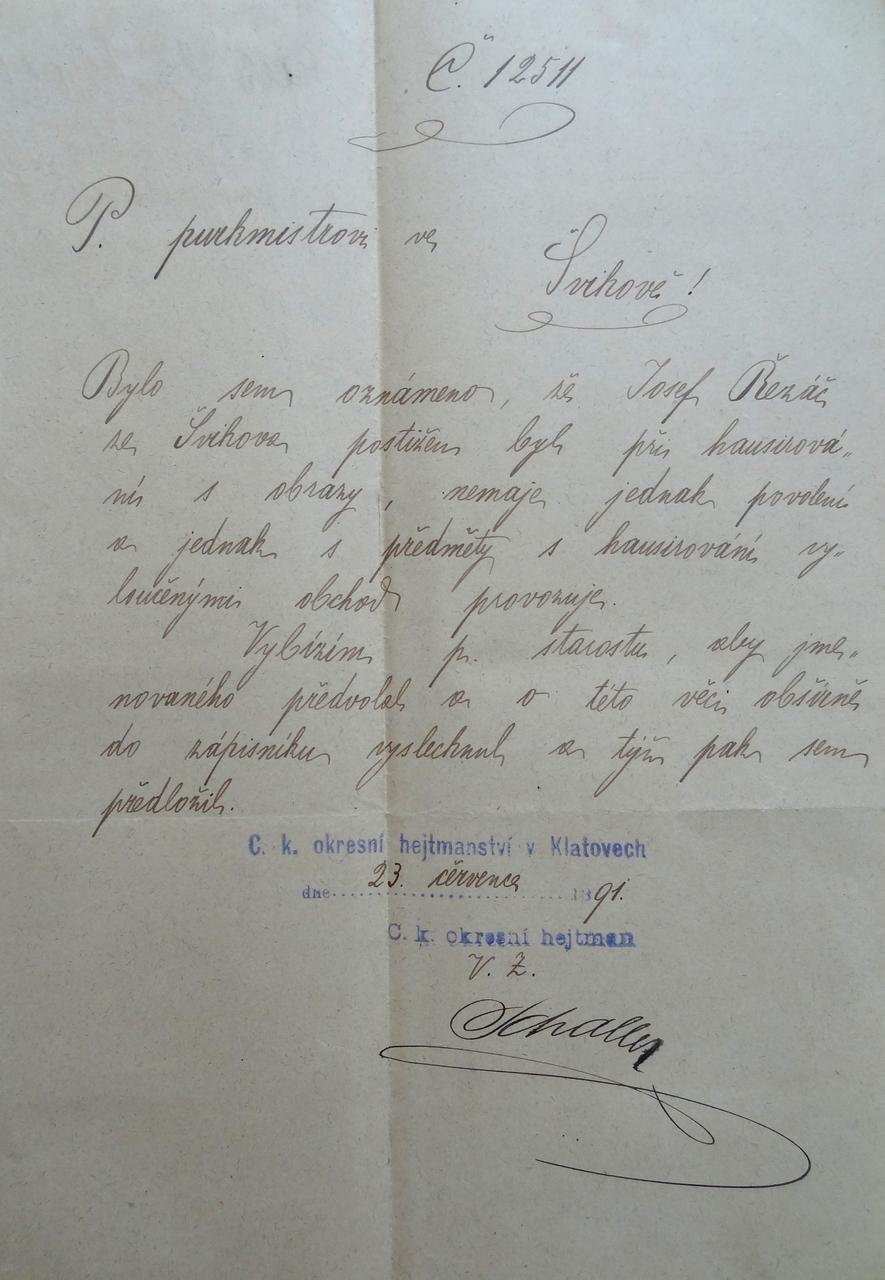 Č. 12511
P. purkmistrovi ve
Švihově!
Bylo sem oznámeno, že Josef Řezáč
ze Švihova postižen byl při hausirová„
ní s obrazy, nemaje jednak povolení
a jednak s předměty s hausirování vy„
loučenými obchod provozuje.
Vybízím p. starostu, aby jme„
novaného předvolal a o této věci obšírně
do zápisníku vyslechnul a týž pak sem
předložil.
C. k. okresní hejtmanství v Klatovech
dne 23. července 1891.
C. k. okresní hejtman
V. Z.
Schaller